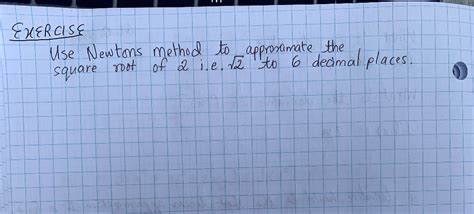 EXERCISE
Use Newtons method to approximate the
square root of 2 i.e. √2 to 6 decimal places.